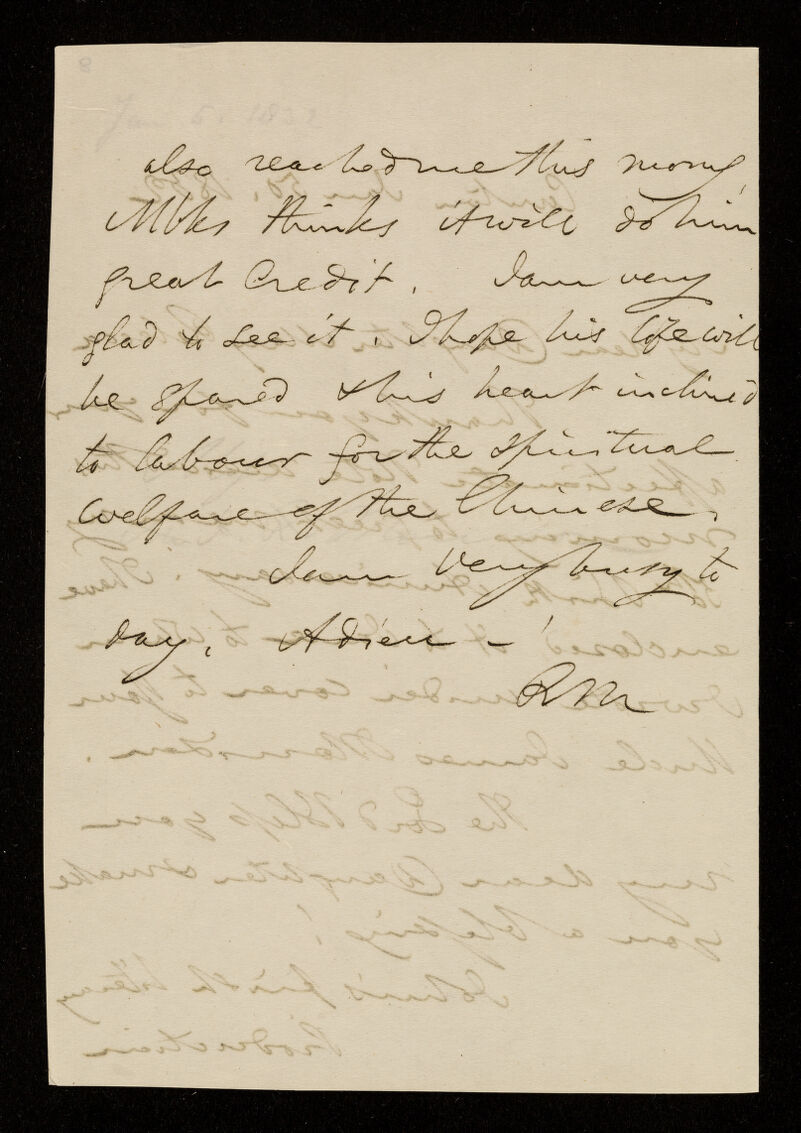 also reached me this morng
Milks thinks it will do him
great Credit. I am very
glad to see it. I hope his life will
be spared & his heart inclined
to labour for the spiritual
welfare of the Chinese.
I am very busy to
day. Adieu - !
RM